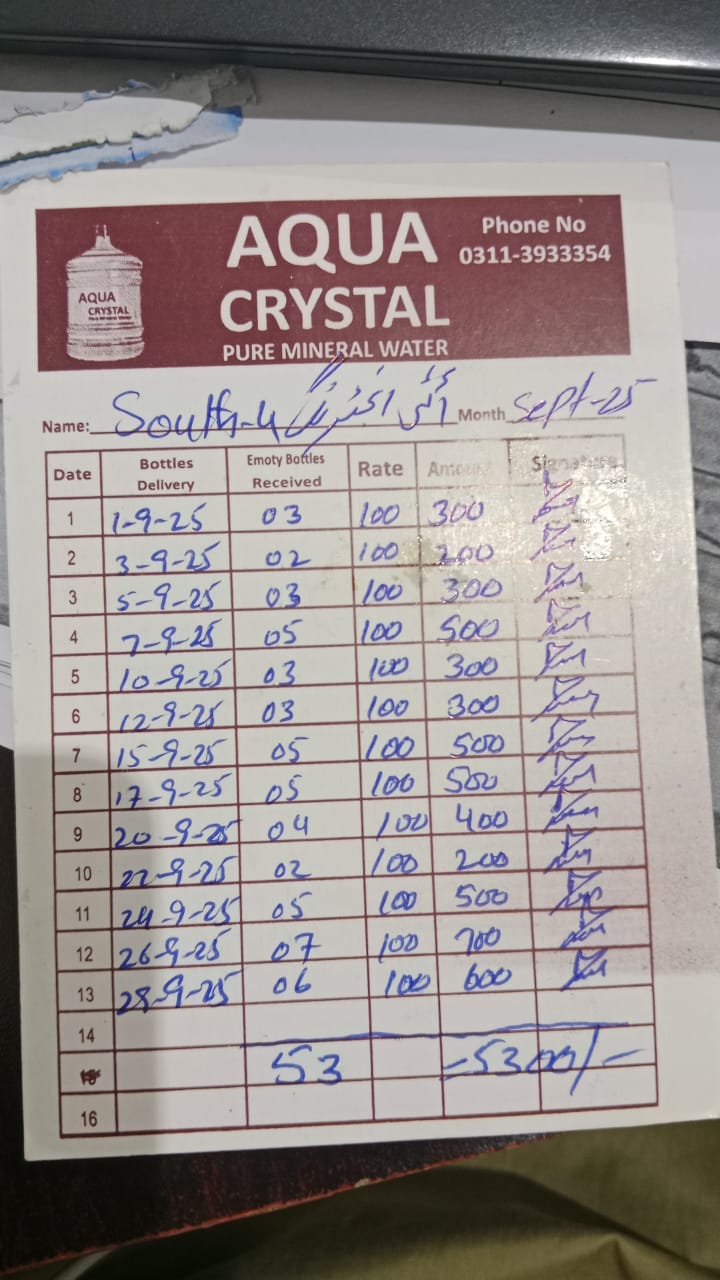 AQUA
CRYSTAL
PURE MINERAL WATER
Phone No
0311-3933354
AQUA
CRYSTAL
Name: South-4 آئی Month Sept-25
Date Bottles Delivery Emoty Bottles Received Rate Amount Signature
1 1-9-25 03 100 300
2 3-9-25 02 100 200
3 5-9-25 03 100 300
4 7-9-25 05 100 500
5 10-9-25 03 100 300
6 12-9-25 03 100 300
7 15-9-25 05 100 500
8 17-9-25 05 100 500
9 20-9-25 04 100 400
10 22-9-25 02 100 200
11 24-9-25 05 100 500
12 26-9-25 07 100 700
13 28-9-25 06 100 600
14
53 =5300/-
16